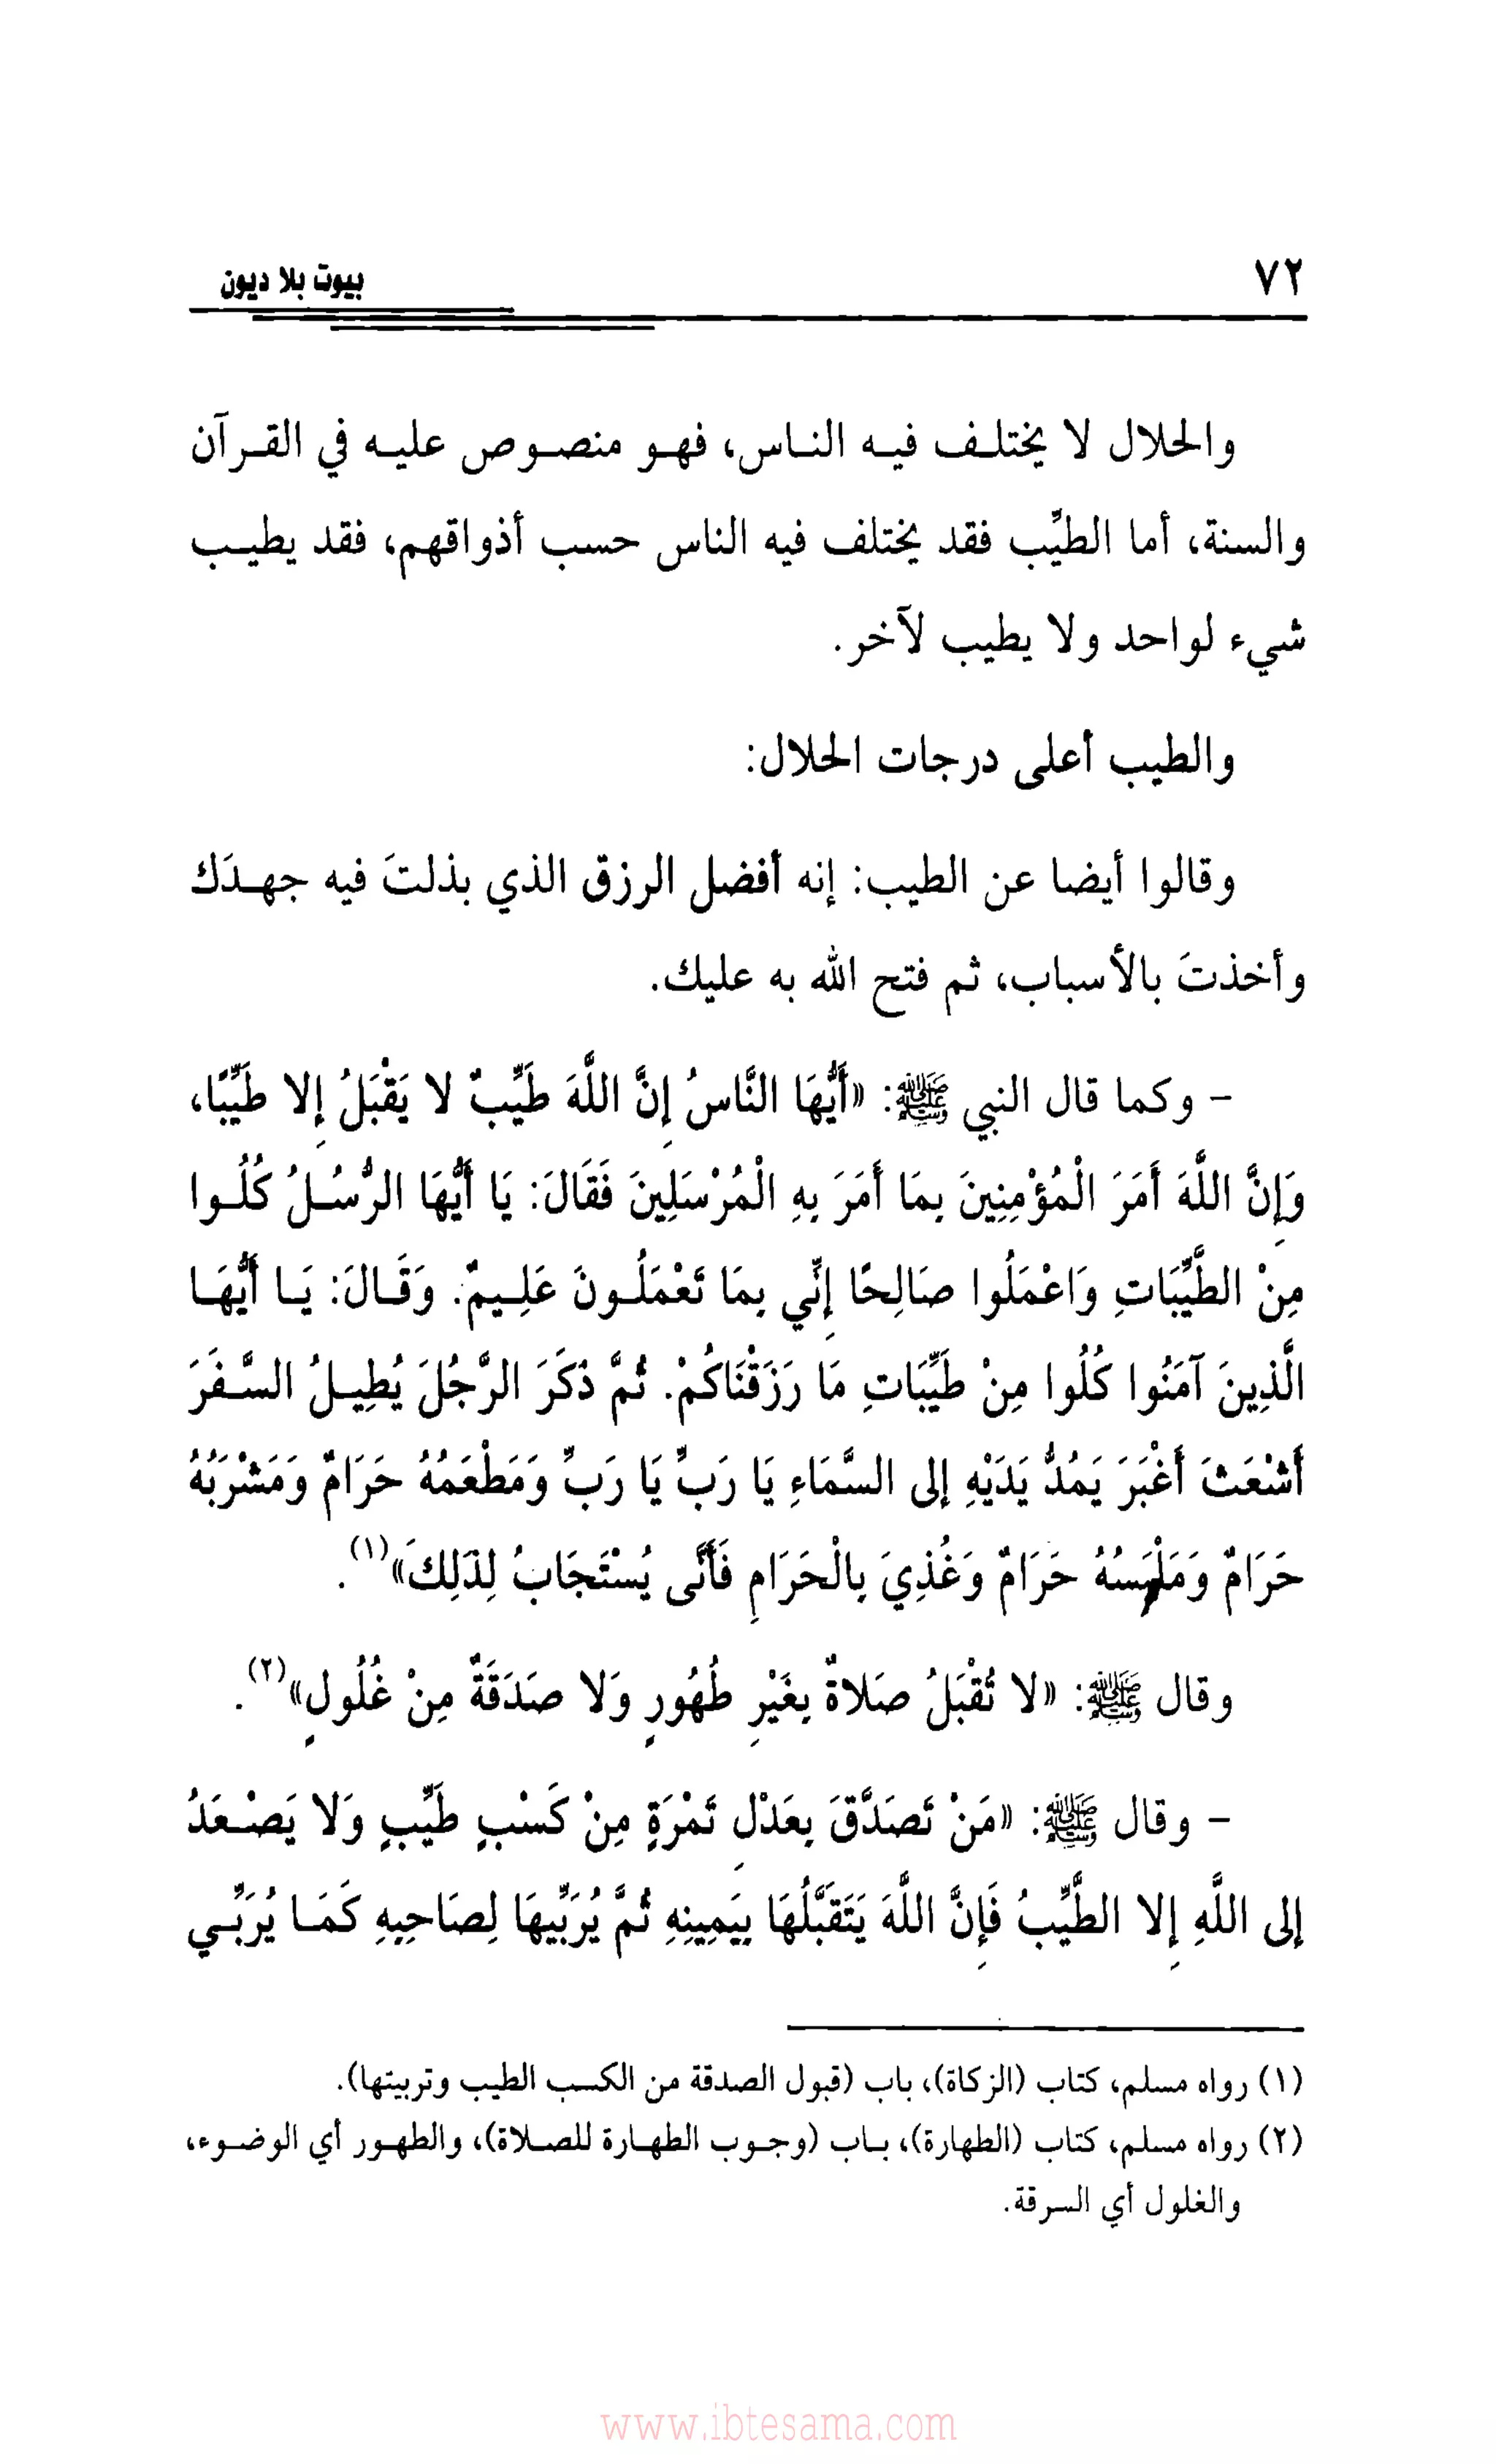 ٧٢
بيوت بلا ديون
والحلال لا يختلف فيه الناس، فهو منصوص عليه في القرآن
والسنة، أما الطيِّب فقد يختلف فيه الناس حسب أذواقهم، فقد يطيب
شيء لواحد ولا يطيب لآخر.
والطيب أعلى درجات الحلال:
وقالوا أيضا عن الطيب: إنه أفضل الرزق الذي بذلتَ فيه جهدَك
وأخذتَ بالأسباب، ثم فتح الله به عليك.
- وكما قال النبي ﷺ: «أَيُّهَا النَّاسُ إِنَّ اللَّهَ طَيِّبٌ لا يَقْبَلُ إِلا طَيِّبًا،
وَإِنَّ اللَّهَ أَمَرَ الْمُؤْمِنِينَ بِمَا أَمَرَ بِهِ الْمُرْسَلِينَ فَقَالَ: يَا أَيُّهَا الرُّسُلُ كُلُوا
مِنْ الطَّيِّبَاتِ وَاعْمَلُوا صَالِحًا إِنِّي بِمَا تَعْمَلُونَ عَلِيمٌ. وَقَالَ: يَا أَيُّهَا
الَّذِينَ آمَنُوا كُلُوا مِنْ طَيِّبَاتِ مَا رَزَقْنَاكُمْ. ثُمَّ ذَكَرَ الرَّجُلَ يُطِيلُ السَّفَرَ
أَشْعَثَ أَغْبَرَ يَمُدُّ يَدَيْهِ إلى السَّمَاءِ يَا رَبِّ يَا رَبِّ وَمَطْعَمُهُ حَرَامٌ وَمَشْرَبُهُ
حَرَامٌ وَمَلْبَسُهُ حَرَامٌ وَغُذِيَ بِالْحَرَامِ فَأَنَّى يُسْتَجَابُ لِذَلِكَ»(١).
وقال ﷺ: «لا تُقْبَلُ صَلاةٌ بِغَيْرِ طُهُورٍ وَلا صَدَقَةٌ مِنْ غُلُولٍ»(٢).
- وقال ﷺ: «مَنْ تَصَدَّقَ بِعَدْلِ تَمْرَةٍ مِنْ كَسْبٍ طَيِّبٍ وَلا يَصْعَدُ
إلى اللَّهِ إِلا الطَّيِّبُ فَإِنَّ اللَّهَ يَتَقَبَّلُهَا بِيَمِينِهِ ثُمَّ يُرَبِّيهَا لِصَاحِبِهِ كَمَا يُرَبِّي
(١) رواه مسلم، كتاب (الزكاة)، باب (قبول الصدقة من الكسب الطيب وتربيتها).
(٢) رواه مسلم، كتاب (الطهارة)، باب (وجوب الطهارة للصلاة)، والطهور أي الوضوء،
والغلول أي السرقة.
www.ibtesama.com